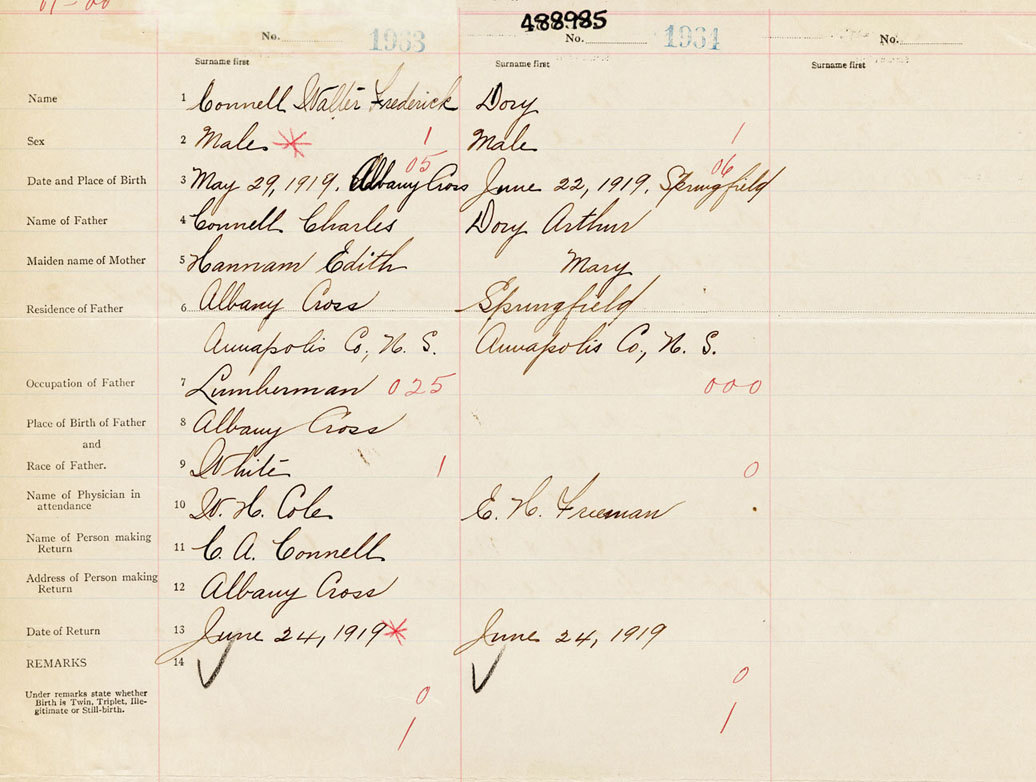 488985
No. 1963 No. 1964 No.
Surname first Surname first Surname first
Name 1 Connell Walter Frederick Dory
Sex 2 Male 1 Male 1
05 06
Date and Place of Birth 3 May 29, 1919. Albany Cross June 22, 1919. Springfield
Name of Father 4 Connell Charles Dory Arthur
Maiden name of Mother 5 Hannam Edith Mary
Residence of Father 6 Albany Cross Springfield
Annapolis Co, N. S. Annapolis Co, N. S.
Occupation of Father 7 Lumberman 025 000
Place of Birth of Father 8 Albany Cross
and
Race of Father. 9 White 1 0
Name of Physician in
attendance 10 W. H. Cole E. H. Freeman
Name of Person making
Return 11 C. A. Connell
Address of Person making
Return 12 Albany Cross
Date of Return 13 June 24, 1919 June 24, 1919
REMARKS 14
Under remarks state whether
Birth is Twin, Triplet, Ille-
gitimate or Still-birth.
0 0
1 1